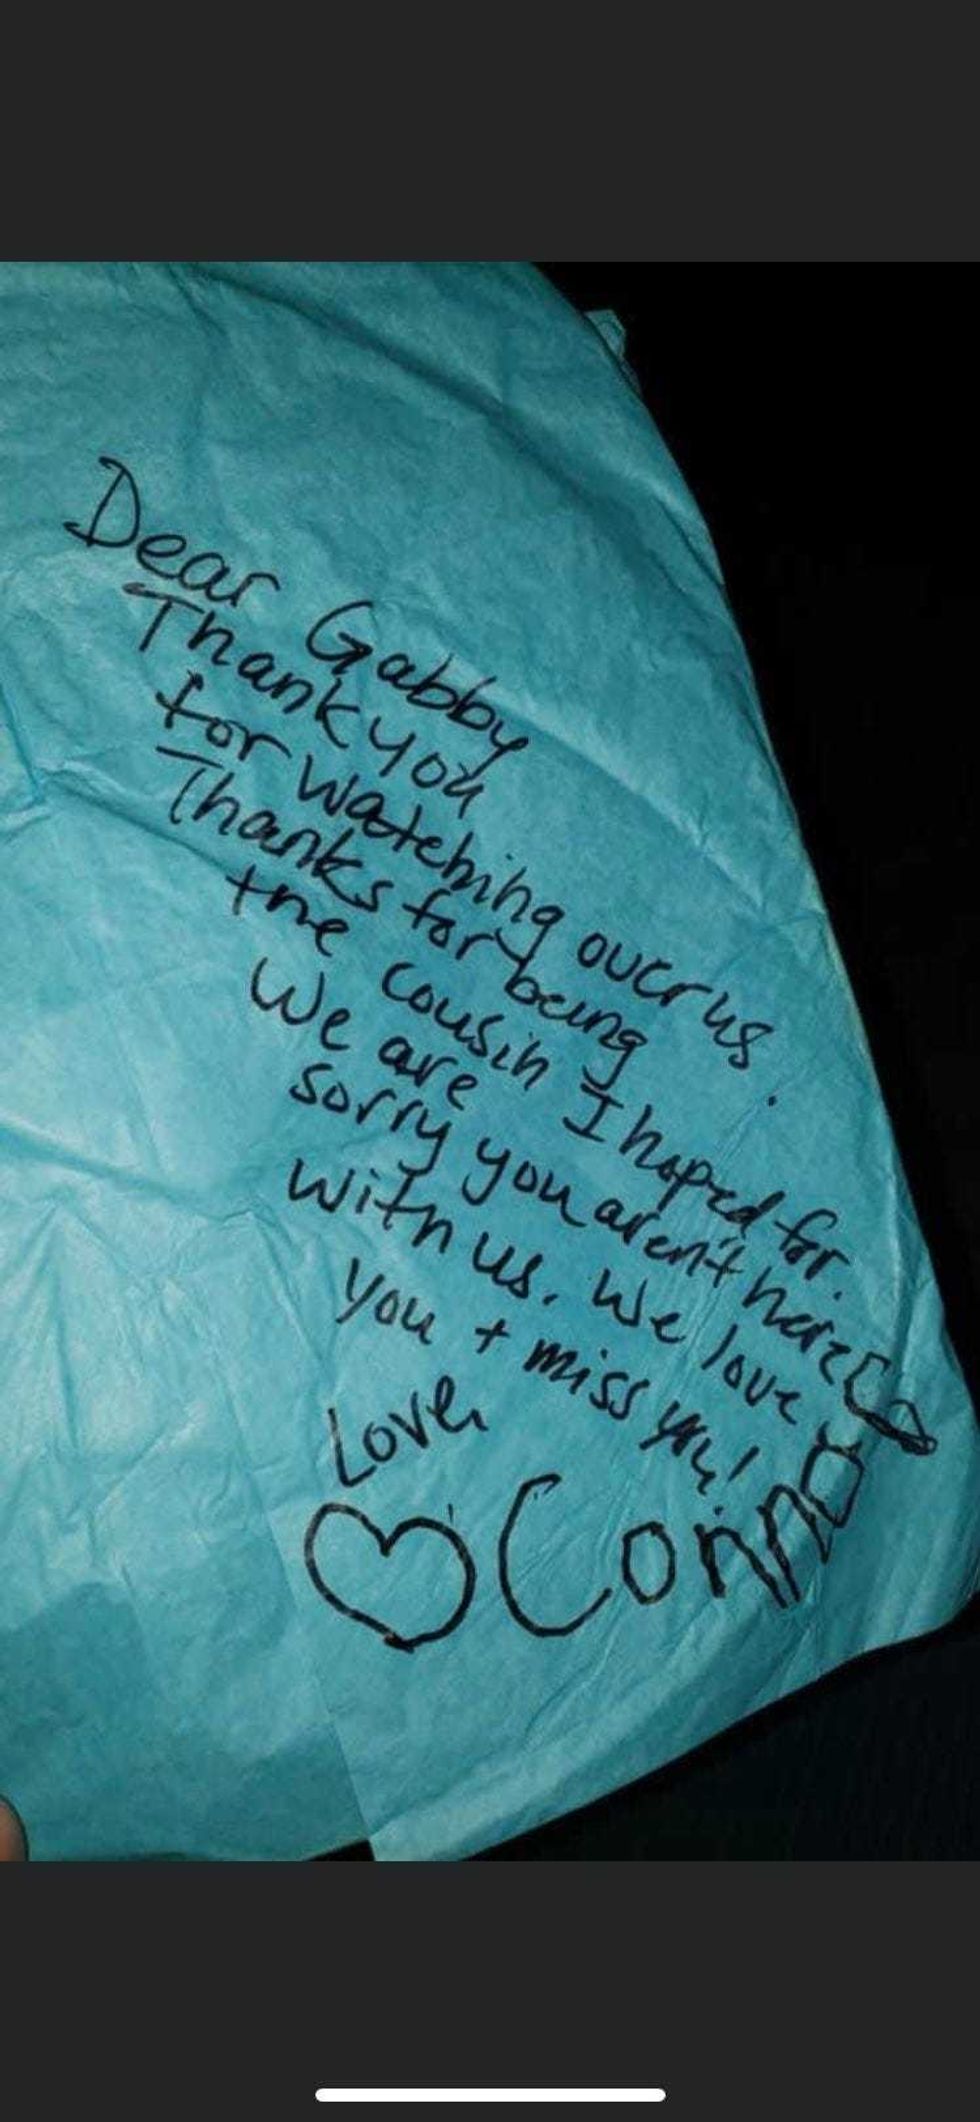 Dear Gabby
Thank you
for watching over us.
Thanks for being
the cousin I hoped for.
We are
sorry you aren't here
with us. We love
you + miss you!
Love
Connor